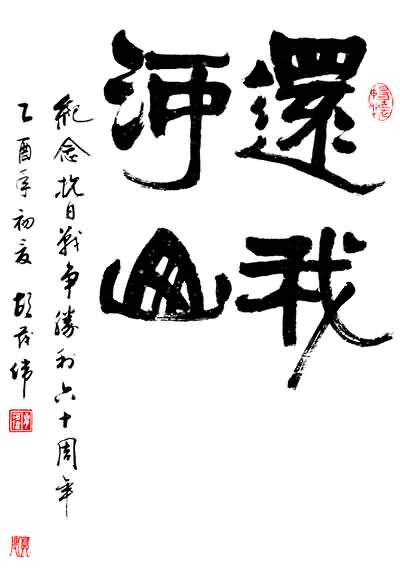 還我
河山
紀念抗日戰争勝利六十周年
乙酉年初夏 胡茂伟